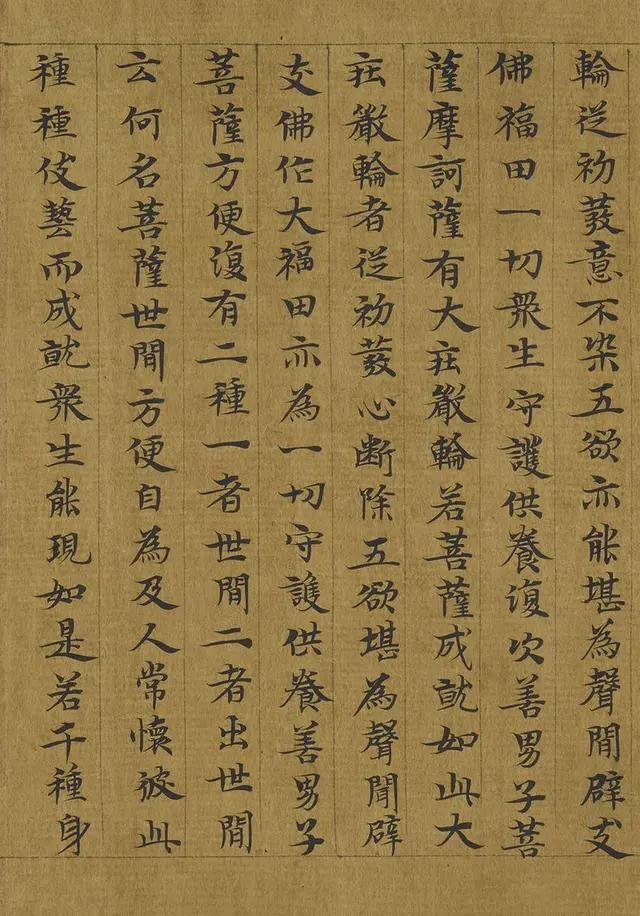 輪從初發意不染五欲亦能堪為聲聞辟支
佛福田一切衆生守護供養復次善男子菩
薩摩訶薩有大莊嚴輪若菩薩成就如此大
莊嚴輪者從初發心斷除五欲堪為聲聞辟
支佛作大福田亦為一切守護供養善男子
菩薩方便復有二種一者世間二者出世間
云何名菩薩世間方便自為及人常懷彼此
種種伎藝而成就衆生能現如是若干種身